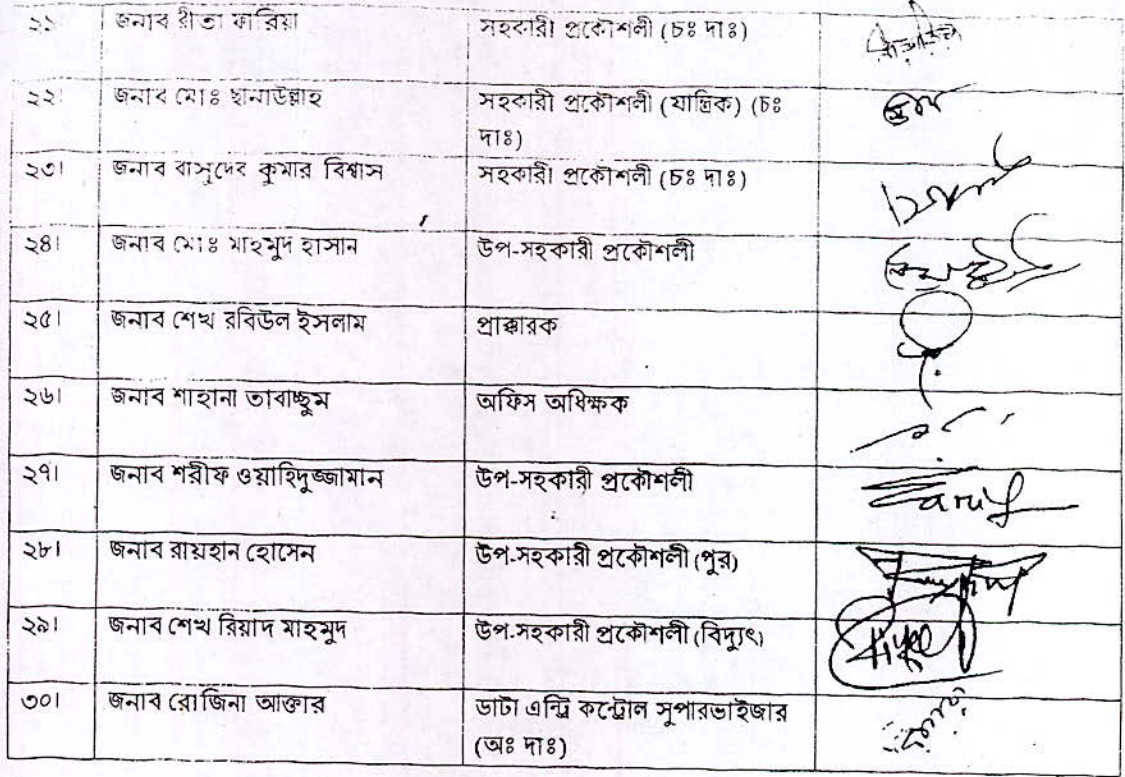 ২১ জনাব রীতা ফারিয়া সহকারী প্রকৌশলী (চঃ দাঃ)
২২। জনাব মোঃ ছানাউল্লাহ সহকারী প্রকৌশলী (যান্ত্রিক) (চঃ
দাঃ)
২৩। জনাব বাসুদেব কুমার বিশ্বাস সহকারী প্রকৌশলী (চঃ দাঃ)
২৪। জনাব মোঃ মাহমুদ হাসান উপ-সহকারী প্রকৌশলী
২৫। জনাব শেখ রবিউল ইসলাম প্রাক্কারক
২৬। জনাব শাহানা তাবাচ্ছুম অফিস অধিক্ষক
২৭। জনাব শরীফ ওয়াহিদুজ্জামান উপ-সহকারী প্রকৌশলী
২৮। জনাব রায়হান হোসেন উপ-সহকারী প্রকৌশলী (পুর)
২৯। জনাব শেখ রিয়াদ মাহমুদ উপ-সহকারী প্রকৌশলী (বিদ্যুৎ)
৩০। জনাব রোজিনা আক্তার ডাটা এন্ট্রি কন্ট্রোল সুপারভাইজার
(অঃ দাঃ)